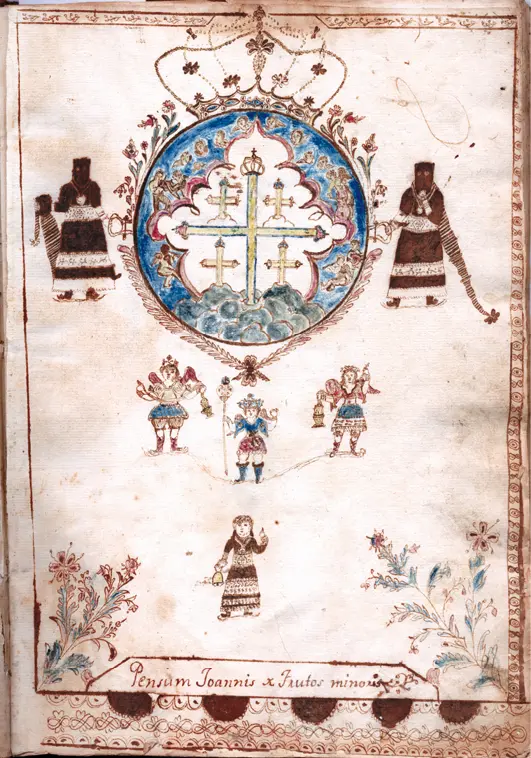 Pensum Joannis x Frutos minoris